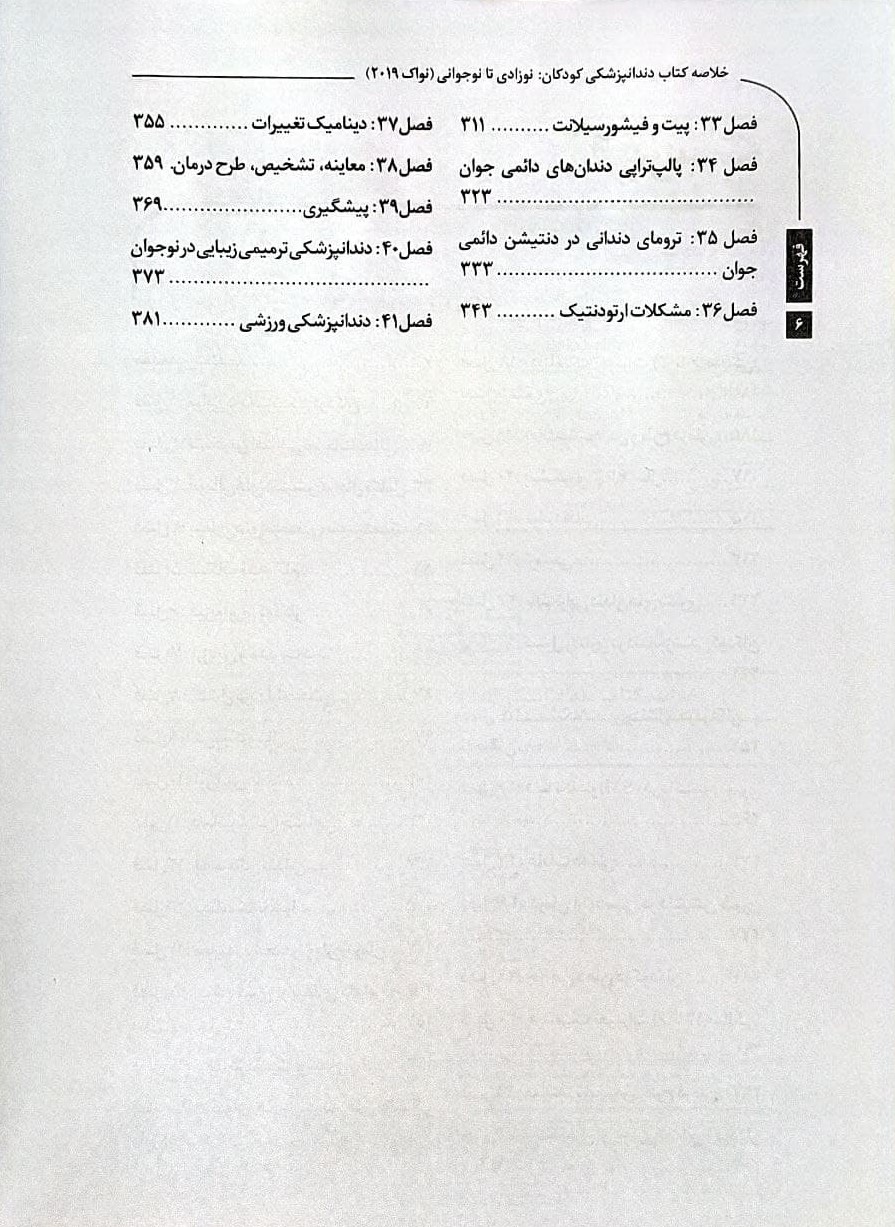 خلاصه کتاب دندانپزشکی کودکان: نوزادی تا نوجوانی (نواک ۲۰۱۹)
فصل۳۳: پیت و فیشورسیلانت .......... ۳۱۱
فصل ۳۴: پالپ‌تراپی دندان‌های دائمی جوان
............................................ ۳۲۳
فصل ۳۵: ترومای دندانی در دنتیشن دائمی
جوان ..................................... ۳۳۳
فصل۳۶: مشکلات ارتودنتیک .......... ۳۴۳
فصل۳۷: دینامیک تغییرات ............. ۳۵۵
فصل۳۸: معاینه، تشخیص، طرح درمان. ۳۵۹
فصل۳۹: پیشگیری.......................۳۶۹
فصل۴۰: دندانپزشکی ترمیمی زیبایی در نوجوان
............................................ ۳۷۳
فصل۴۱: دندانپزشکی ورزشی ............۳۸۱
فهرست
۶